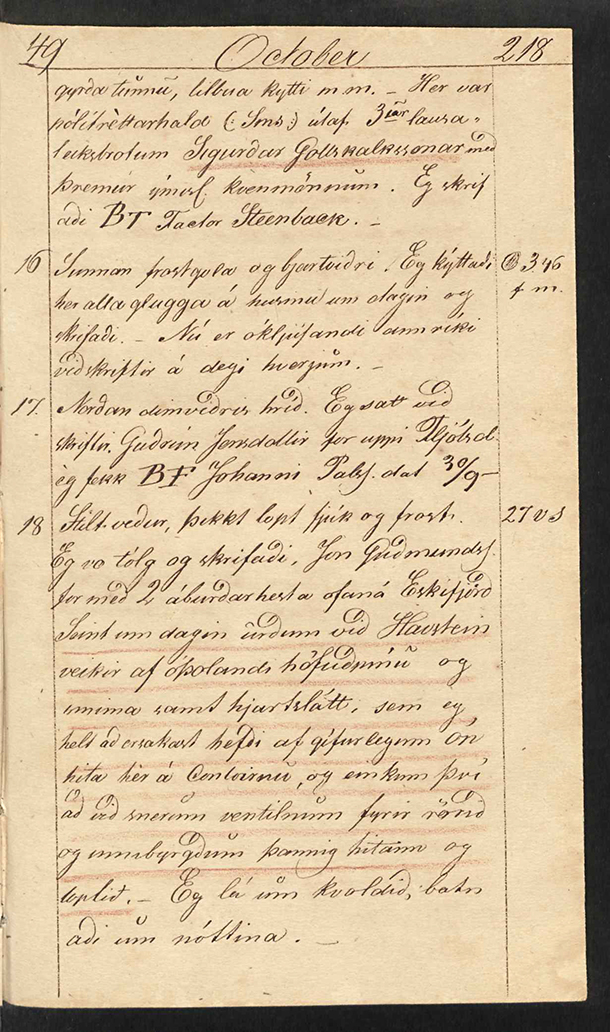 49 October 218
gyrda tunnu, tilbua kytti m.m. – Her var
pólitrèttarhald (: Sms :) útaf 3iúr lausa-
leiksbrotum Sigurdar Gottskalkssonar med
þremur ýmisl. kvenmönnum. Eg skrif
adi BT Factor Steenback. –
16 Sunnan frostgola og bjartvidri. Eg kýttadi 346
her alla glugga á husinu um dagin og f m.
skrifadi. – Nú er ókljúfandi annríki
vid skriftir á degi hverjum. –
17. Nordan dimvidris hrid. Eg satt vid
skriftir. Gudrún Jonsdottir for uppi Fljótsd
eg fekk BF Johanni Palss. dat 30/9 –
18 Stilt vedur, þekkt lopt fjúk og frost. 27 v s
Eg vo tólg og skrifadi, Jon Gudmunds.
for med 2 áburdarhesta ofaná Eskifjörd
Seint um dagin urdum vid Havstein
veikir af óþolandi höfudpínu og
svima samt hjartslátt, sem eg
helt ad orsakast hefdi af gífurlegum on
hita hèr á Contoirnu, og einkum því
ad vid snerum ventilnum fyrir rörid
og innibyrgdum þannig hitann og
loptid. – Eg lá um kvoldid, batn
adi um nóttina. –